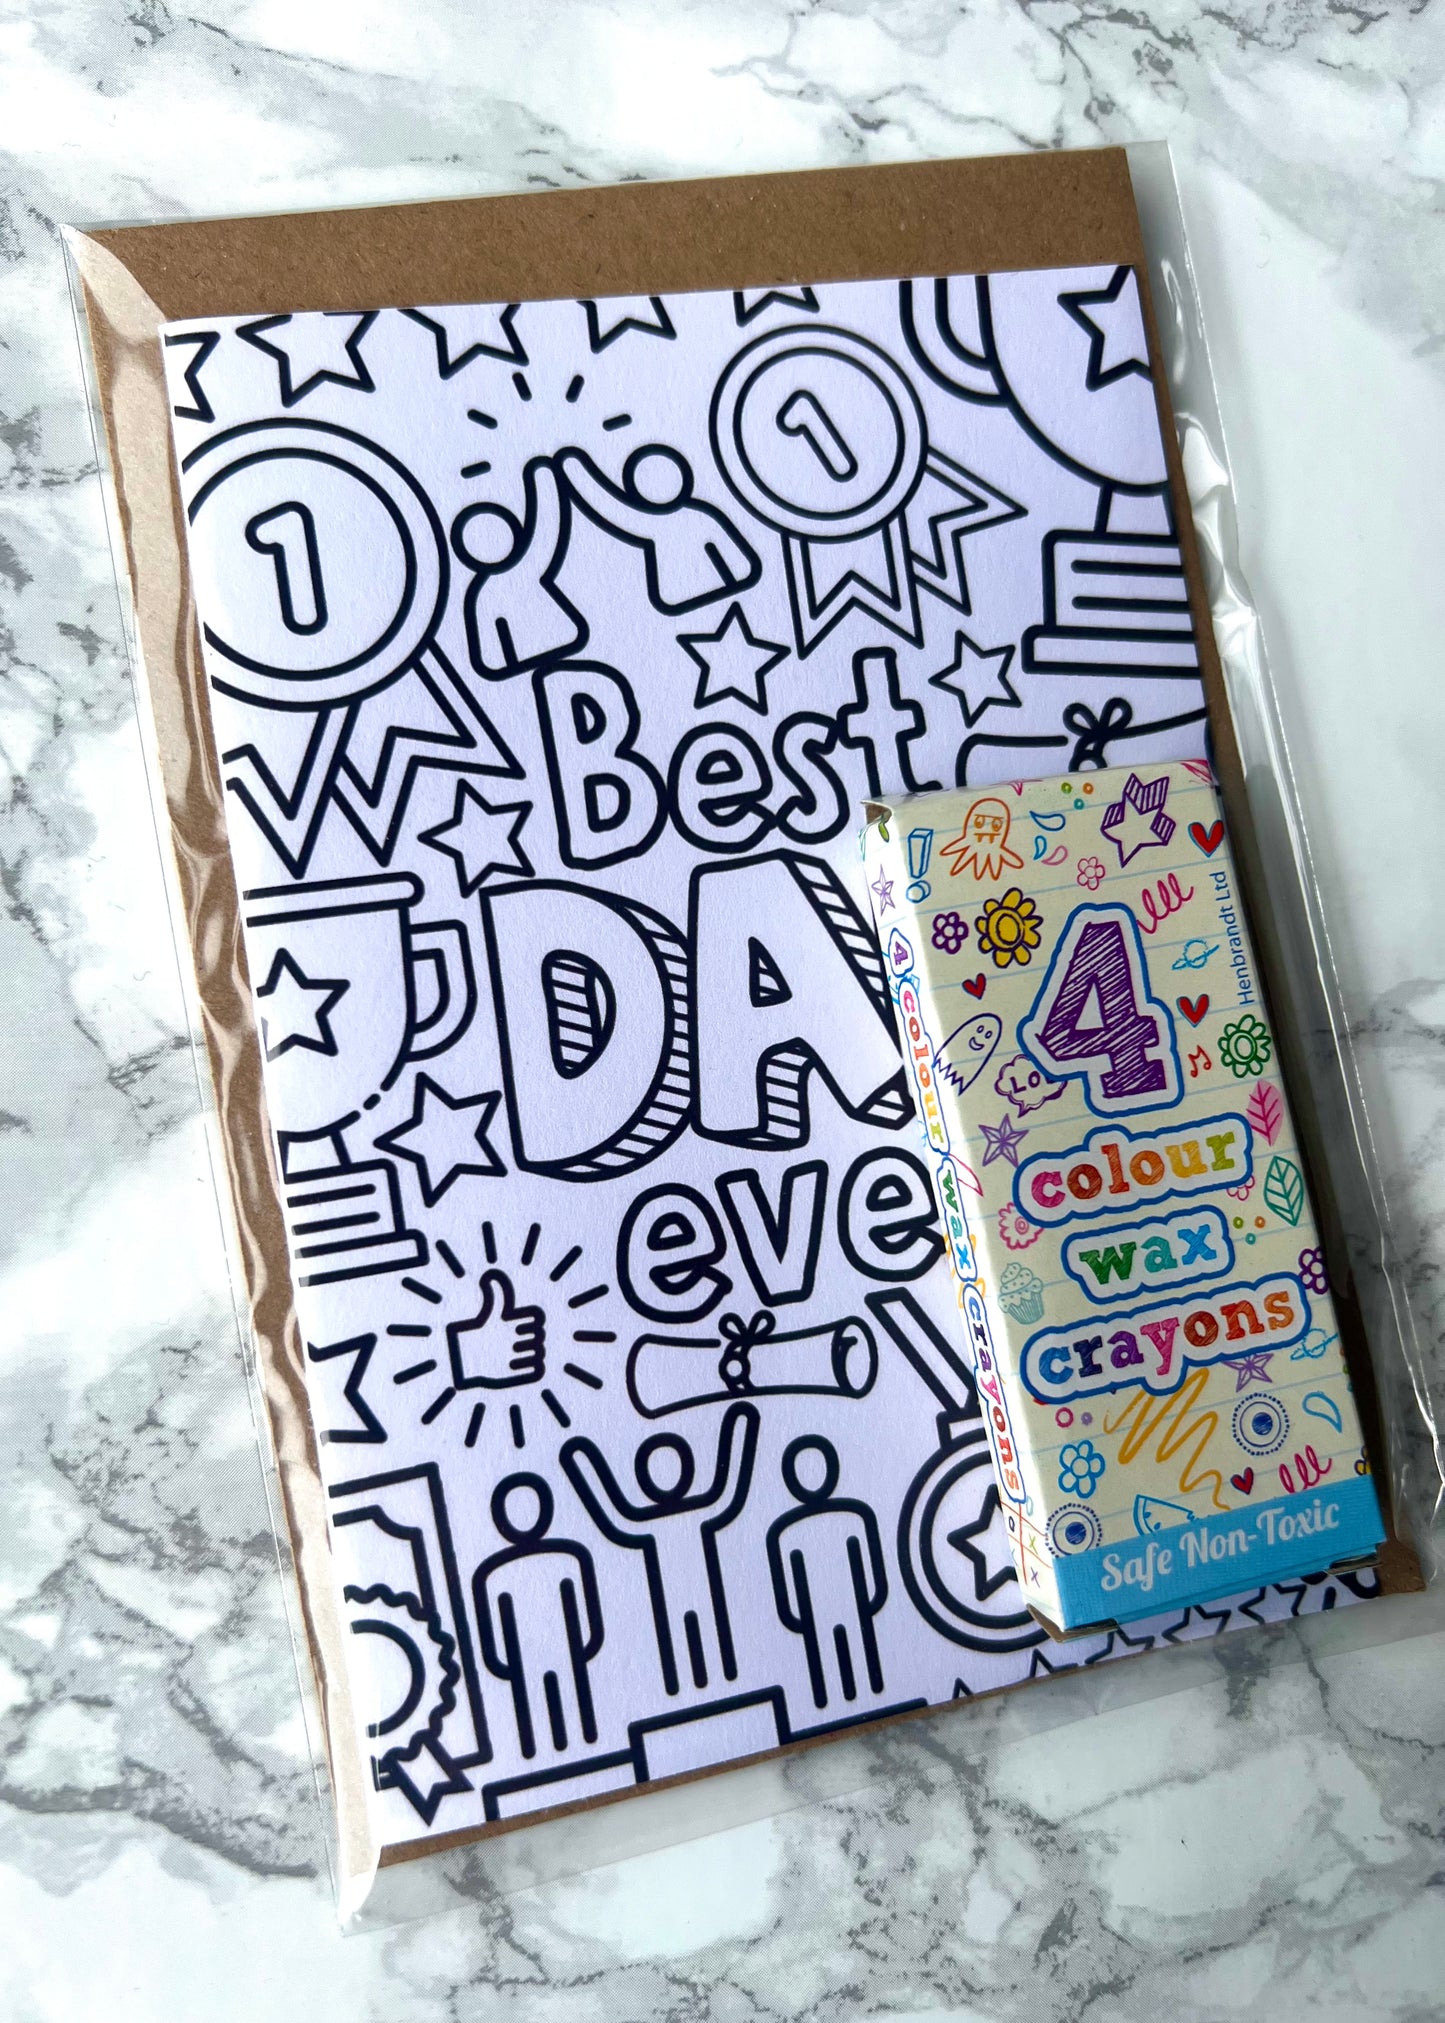 1
1
Best
DA
eve
4
colour
wax
crayons
Safe Non-Toxic
Henbrandt Ltd
4 colour wax crayons